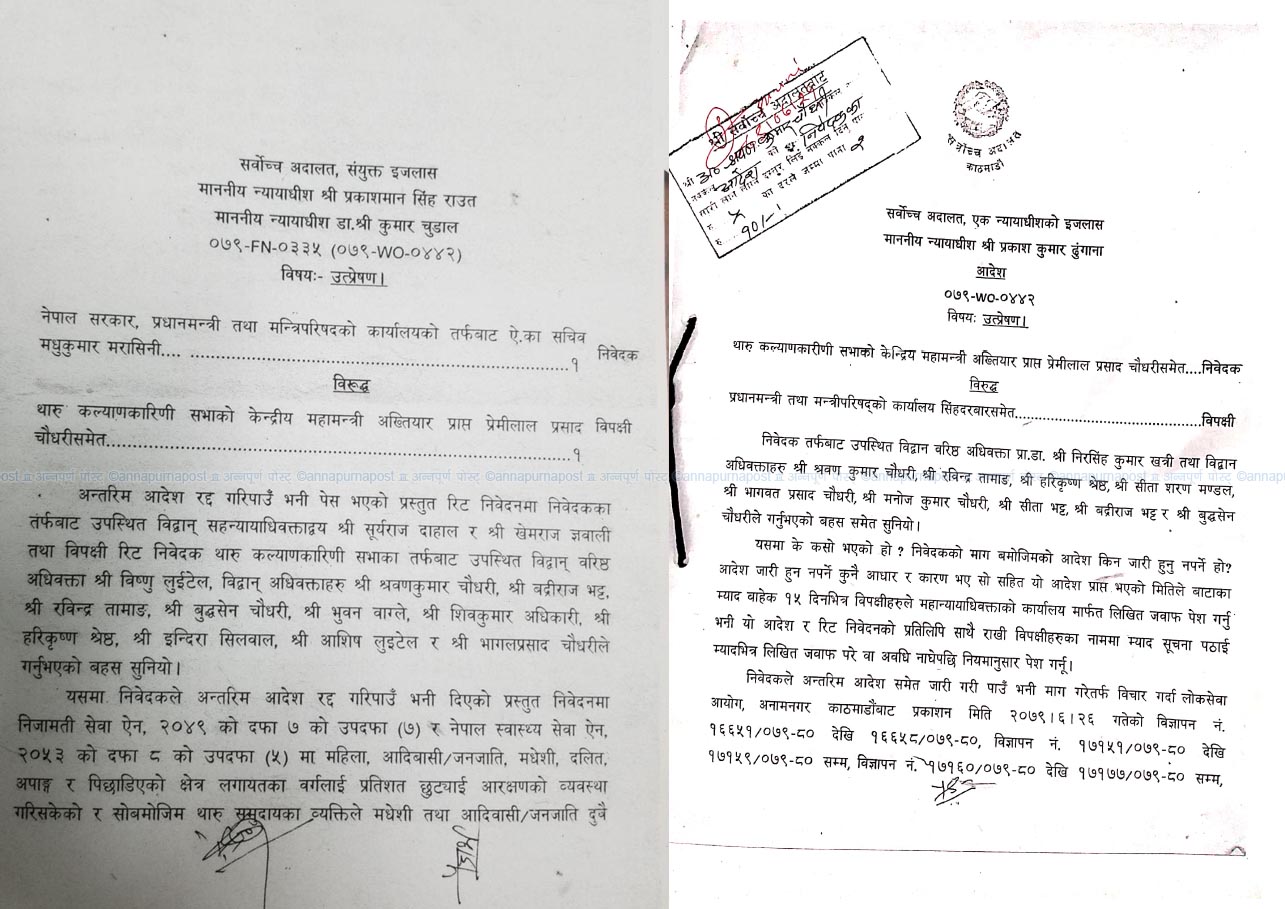 सर्वोच्च अदालत, संयुक्त इजलास
माननीय न्यायाधीश श्री प्रकाशमान सिंह राउत
माननीय न्यायाधीश डा.श्री कुमार चुडाल
०७९-FN-०३३५ (०७९-WO-०४४२)
विषयः- उत्प्रेषण।
नेपाल सरकार, प्रधानमन्त्री तथा मन्त्रिपरिषदको कार्यालयको तर्फबाट ऐ.का सचिव
मधुकुमार मरासिनी.... ......................................................................१ निवेदक
विरूद्ध
थारु कल्याणकारिणी सभाको केन्द्रीय महामन्त्री अख्तियार प्राप्त प्रेमीलाल प्रसाद विपक्षी
चौधरीसमेत.....................................................................................१
अन्तरिम आदेश रद्द गरिपाउँ भनी पेस भएको प्रस्तुत रिट निवेदनमा निवेदकका
तर्फबाट उपस्थित विद्वान् सहन्यायाधिवक्ताद्वय श्री सूर्यराज दाहाल र श्री खेमराज ज्ञवाली
तथा विपक्षी रिट निवेदक थारु कल्याणकारिणी सभाका तर्फबाट उपस्थित विद्वान् वरिष्ठ
अधिवक्ता श्री विष्णु लुईटेल, विद्वान् अधिवक्ताहरु श्री श्रवणकुमार चौधरी, श्री बद्रीराज भट्ट,
श्री रविन्द्र तामाङ, श्री बुद्धसेन चौधरी, श्री भुवन वाग्ले, श्री शिवकुमार अधिकारी, श्री
हरिकृष्ण श्रेष्ठ, श्री इन्दिरा सिलवाल, श्री आशिष लुइटेल र श्री भागलप्रसाद चौधरीले
गर्नुभएको बहस सुनियो।
यसमा निवेदकले अन्तरिम आदेश रद्द गरिपाउँ भनी दिएको प्रस्तुत निवेदनमा
निजामती सेवा ऐन, २०४९ को दफा ७ को उपदफा (७) र नेपाल स्वास्थ्य सेवा ऐन,
२०५३ को दफा ८ को उपदफा (५) मा महिला, आदिबासी/जनजाति, मधेशी, दलित,
अपाङ्ग र पिछाडिएको क्षेत्र लगायतका वर्गलाई प्रतिशत छुट्याई आरक्षणको व्यवस्था
गरिसकेको र सोबमोजिम थारु समुदायका व्यक्तिले मधेशी तथा आदिवासी/जनजाति दुवै
श्री सर्वोच्च अदालतबाट
१०/-
सर्वोच्च अदालत
काठमाडौं
सर्वोच्च अदालत, एक न्यायाधीशको इजलास
माननीय न्यायाधीश श्री प्रकाश कुमार ढुंगाना
आदेश
०७९-WO-०४४२
विषयः उत्प्रेषण।
थारु कल्याणकारीणी सभाको केन्द्रिय महामन्त्री अख्तियार प्राप्त प्रेमीलाल प्रसाद चौधरीसमेत....निवेदक
विरुद्ध
प्रधानमन्त्री तथा मन्त्रीपरिषद्को कार्यालय सिंहदरबारसमेत..........................................विपक्षी
निवेदक तर्फबाट उपस्थित विद्वान वरिष्ठ अधिवक्ता प्रा.डा. श्री निरसिंह कुमार खत्री तथा विद्वान
अधिवक्ताहरु श्री श्रवण कुमार चौधरी, श्री रविन्द्र तामाड, श्री हरिकृष्ण श्रेष्ठ, श्री सीता शरण मण्डल,
श्री भागवत प्रसाद चौधरी, श्री मनोज कुमार चौधरी, श्री सीता भट्ट, श्री बद्रीराज भट्ट र श्री बुद्धसेन
चौधरीले गर्नुभएको बहस समेत सुनियो।
यसमा के कसो भएको हो ? निवेदकको माग बमोजिमको आदेश किन जारी हुनु नपर्ने हो?
आदेश जारी हुन नपर्ने कुनै आधार र कारण भए सो सहित यो आदेश प्राप्त भएको मितिले बाटाका
म्याद बाहेक १५ दिनभित्र विपक्षीहरुले महान्यायाधिवक्ताको कार्यालय मार्फत लिखित जवाफ पेश गर्नु
भनी यो आदेश र रिट निवेदनको प्रतिलिपि साथै राखी विपक्षीहरुका नाममा म्याद सूचना पठाई
म्यादभित्र लिखित जवाफ परे वा अवधि नाघेपछि नियमानुसार पेश गर्नू।
निवेदकले अन्तरिम आदेश समेत जारी गरी पाउँ भनी माग गरेतर्फ विचार गर्दा लोकसेवा
आयोग, अनामनगर काठमाडौंबाट प्रकाशन मिति २०७९।६।२६ गतेको विज्ञापन नं.
१६६५१/०७९-८० देखि १६६५८/०७९-८०, विज्ञापन नं. १७१५१/०७९-८० देखि
१७१५९/०७९-८० सम्म, विज्ञापन नं. १७१६०/०७९-८० देखि १७१७७/०७९-८० सम्म,
©annapurnapost अन्नपूर्ण पोस्ट ©annapurnapost अन्नपूर्ण पोस्ट ©annapurnapost